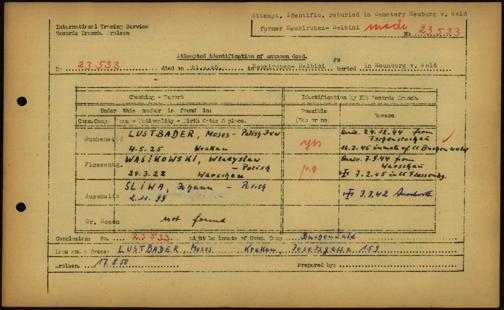 Attempt. Identific. reburied in Cemetery Neuburg v. Wald
International Tracing Service
Records Branch. Arolsen
former Neukirchen-Balbini made
No 23.533
Attempted identification of unknown dead.
No 23.533 died on 21.4.45. Neukirchen-Balbini buried in Neunburg v. Wald
Checking - Report
Identification by ITS Records Branch.
Under this number is found in:
Possible
Yes or no
Reason
Conc.Camp Name - Nationality - Birth date & place.
Buchenwald LUSTBADER, Moses - Polish Jew
4.5.25 Krakau
yes
24.12.44 from
Tschenstochau
16.2.45 inmate of CC Buchenwald
Flossenbg. WASIKOWSKI, Wladyslaw
Polish
24.3.22 Warschau
no
7.9.44 from
Warschau
7.2.45 in CC Flossenbg.
Auschwitz SLIWA, Johann - Polish
2.11.99
3.9.42 Auschwitz
Gr. Rosen not found
Conclusion No. 23.533 might be inmate of Conc. Camp Buchenwald
LUSTBADER, Moses. Krakau,
Arolsen 17.8.50 Prepared by: